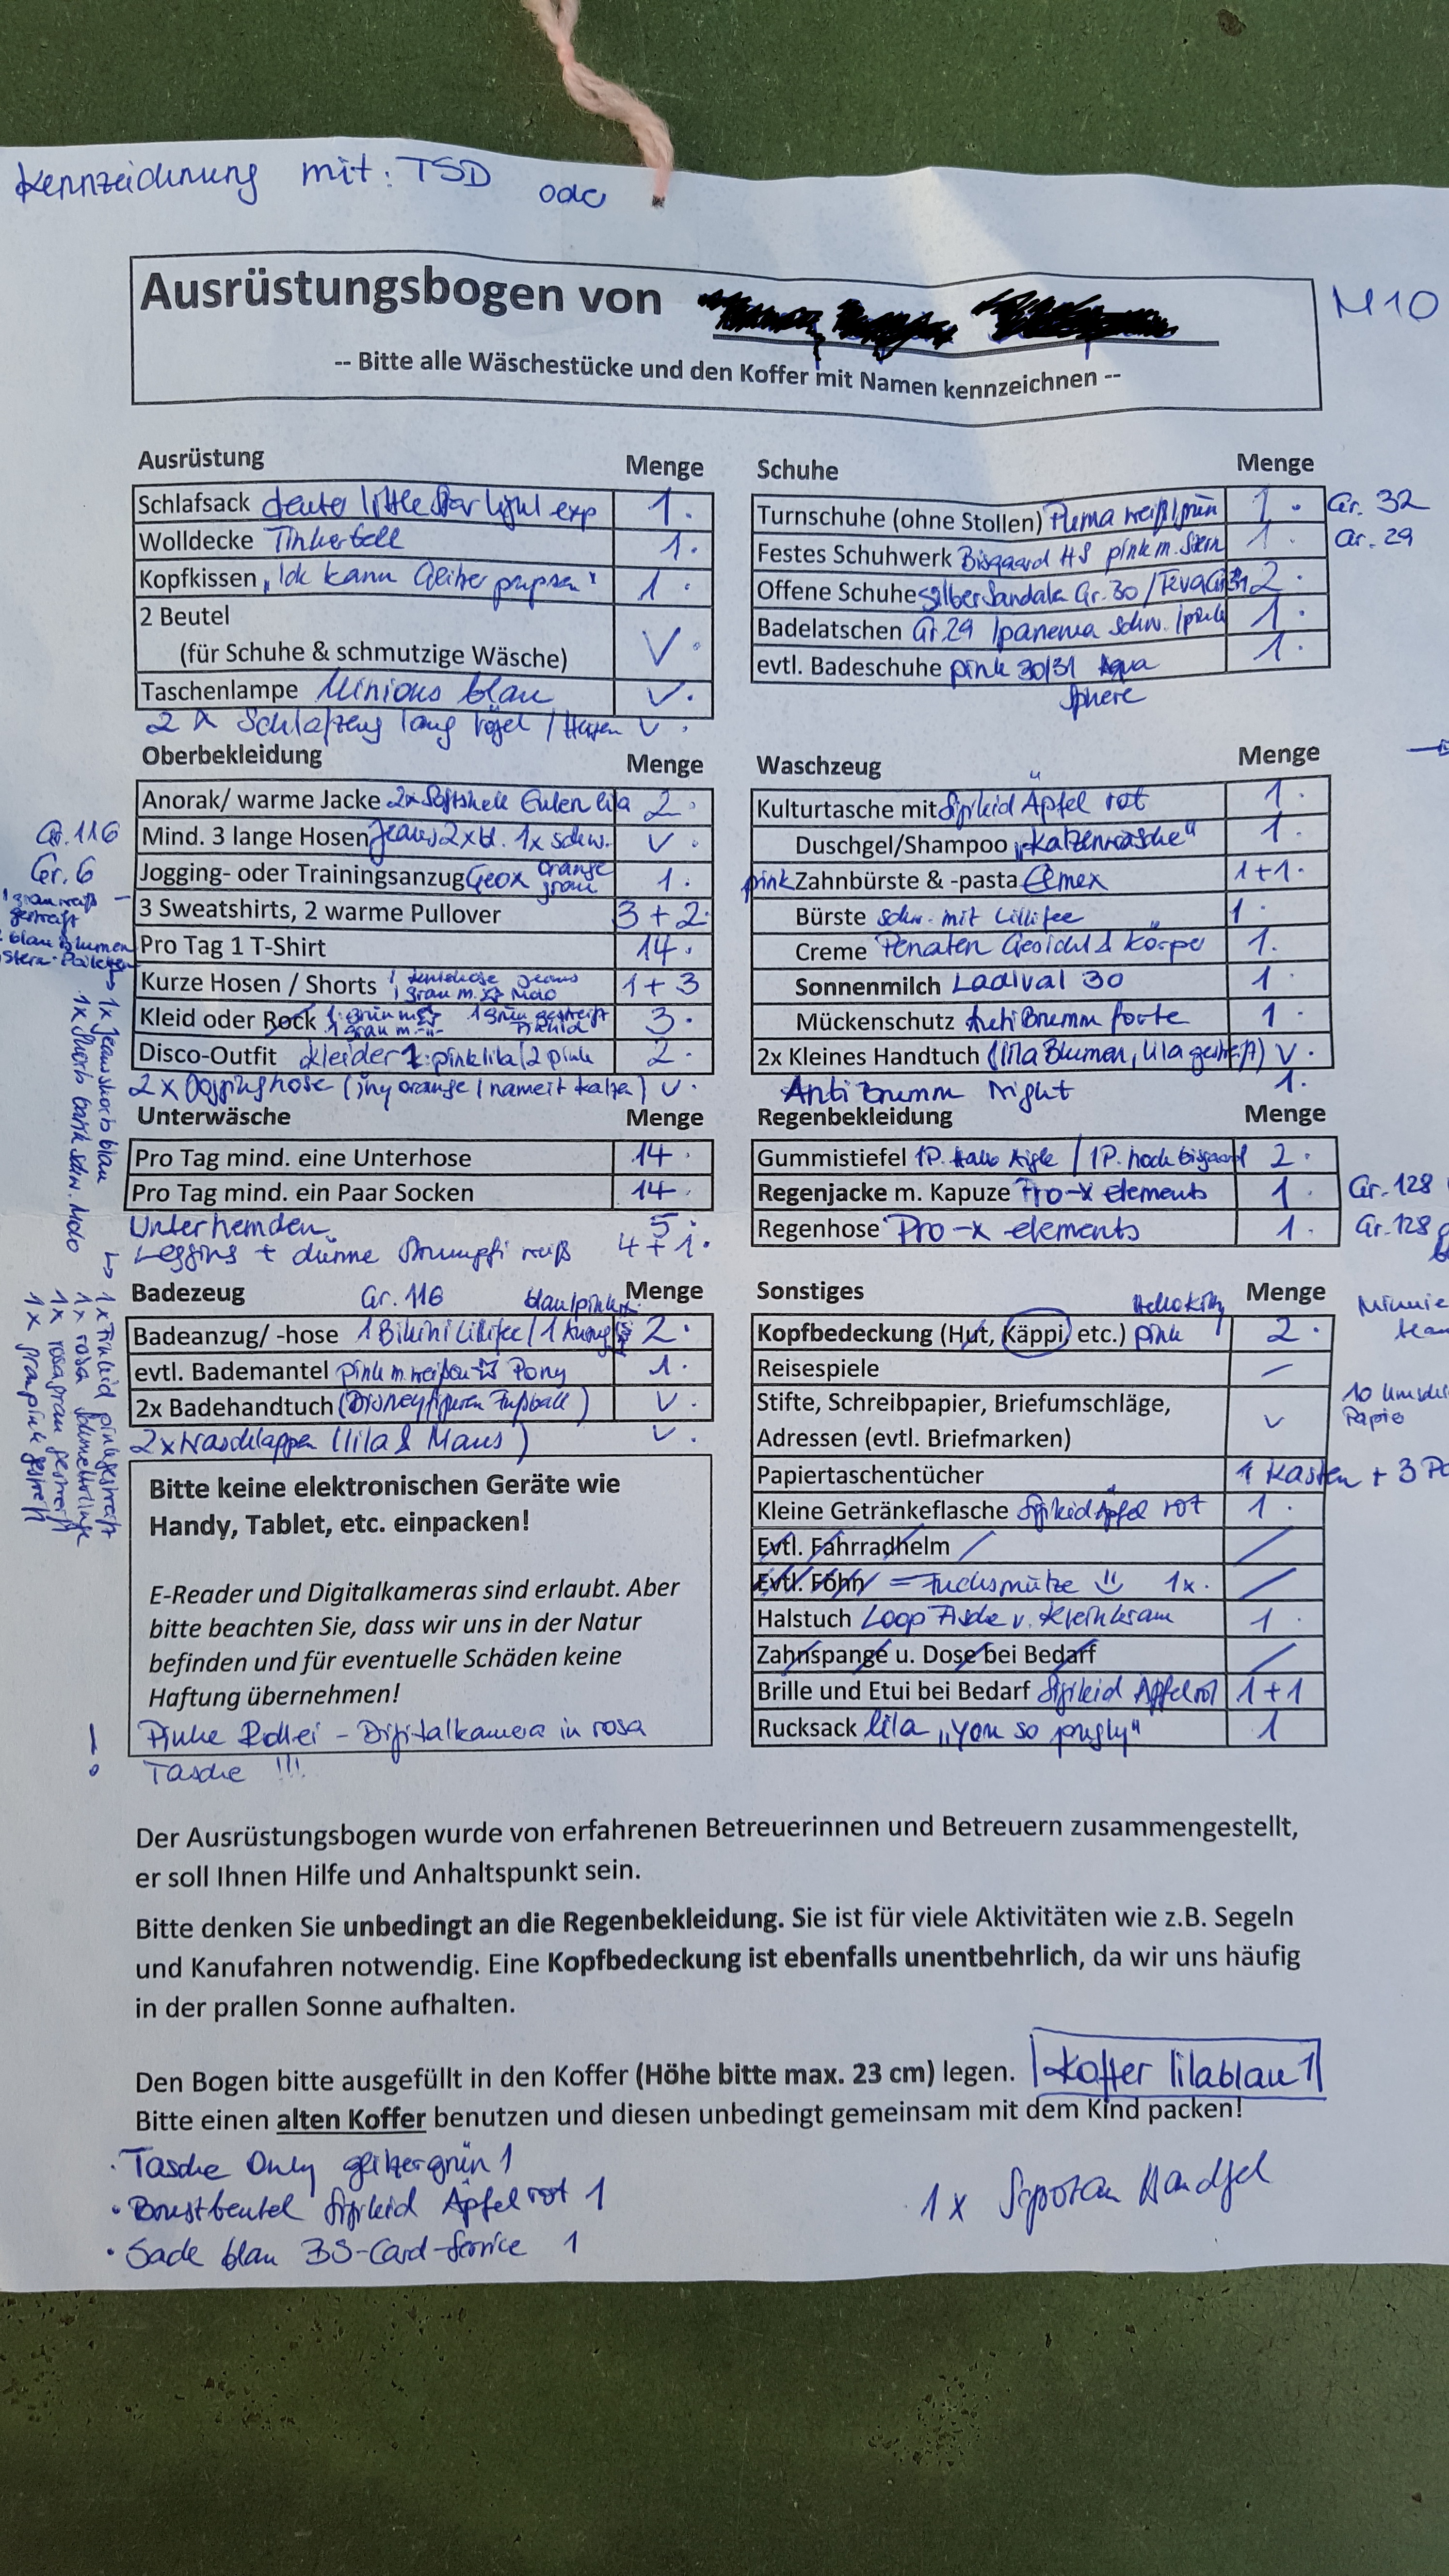 Kennzeichnung mit: TSD
Ausrüstungsbogen von
M10
-- Bitte alle Wäschestücke und den Koffer mit Namen kennzeichnen --
Ausrüstung Menge
Schlafsack deuter little Star exp 1.
Wolldecke Tinkerbell 1.
Kopfkissen „Ick kann pupsen“ 1.
2 Beutel
(für Schuhe & schmutzige Wäsche) V.
Taschenlampe Minions blau V.
2 x Schlafzeug lang Vögel / Hasen V.
Schuhe Menge
Turnschuhe (ohne Stollen) Puma weiß/grün 1. Gr. 32
Festes Schuhwerk Bisgaard HS pink m. Stern 1. Gr. 29
Offene Schuhe Silber Sandale Gr. 30 / Teva 2.
Badelatschen Gr. 29 Ipanema schw. / pink 1.
evtl. Badeschuhe pink 30/31 Aqua 1.
Sphere
Oberbekleidung Menge
Anorak/ warme Jacke 2x Softshell Eulen lila 2.
Gr. 116 Mind. 3 lange Hosen Jeans 2x bl. 1x schw. V.
Gr. 6 Jogging- oder Trainingsanzug Geox orange grau 1.
3 Sweatshirts, 2 warme Pullover 3 + 2.
Pro Tag 1 T-Shirt 14.
Kurze Hosen / Shorts 1 Jeans 1 grau m. 1 + 3
Kleid oder Rock 1 grün m. 1 grün gestreift 1 grau m. 3.
Disco-Outfit Kleider 1: pink lila / 2 pink 2.
2 x Jogginghose (iny orange / nameit katze) V.
1 grau weiß
gestreift
blau Blumen
1x Jeansshorts blau
Waschzeug Menge
Kulturtasche mit Sigikid Äpfel rot 1.
Duschgel/Shampoo „Katzenwäsche“ 1.
pink Zahnbürste & -pasta Elmex 1+1.
Bürste schw. mit Lillifee 1.
Creme Penaten Gesicht & Körper 1.
Sonnenmilch Ladival 30 1.
Mückenschutz Anti Brumm forte 1.
2x Kleines Handtuch (lila Blumen, lila gestreift) V.
Anti Brumm Night 1.
Unterwäsche Menge
Pro Tag mind. eine Unterhose 14.
Pro Tag mind. ein Paar Socken 14.
Unterhemden 5.
Leggins + dünne Strumpfh weiß 4 + 1.
Regenbekleidung Menge
Gummistiefel 1P. halb Aigle / 1P. hoch bisgaard 2.
Regenjacke m. Kapuze Pro-X elements 1. Gr. 128
Regenhose Pro-X elements 1. Gr. 128
Badezeug Gr. 116 blau/pink Menge
Badeanzug/ -hose 1 Bikini Lillifee / 1 2.
evtl. Bademantel pink m. weißen Pony 1.
2x Badehandtuch (Disneyfiguren Fußball) V.
2x Waschlappen (lila & Maus) V.
1x pink gestreift
1x rosa Schmetterlinge
1x rosa grau gestreift
1x grau pink gestreift
Sonstiges Hello Kitty Menge Minnie
Kopfbedeckung (Hut, Käppi, etc.) pink 2.
Reisespiele –
Stifte, Schreibpapier, Briefumschläge,
Adressen (evtl. Briefmarken) V
Papier
Papiertaschentücher 1 Kasten + 3
Kleine Getränkeflasche Sigikid Äpfel rot 1.
Evtl. Fahrradhelm /
Evtl. Föhn = Fuchsmütze 1x. /
Halstuch Loop v. Kleinkram 1.
Zahnspange u. Dose bei Bedarf /
Brille und Etui bei Bedarf Sigikid Äpfel rot 1+1
Rucksack lila „You so pugly“ 1
Bitte keine elektronischen Geräte wie
Handy, Tablet, etc. einpacken!
E-Reader und Digitalkameras sind erlaubt. Aber
bitte beachten Sie, dass wir uns in der Natur
befinden und für eventuelle Schäden keine
Haftung übernehmen!
! Pinke Rollei – Digitalkamera in rosa
Tasche !!!
Der Ausrüstungsbogen wurde von erfahrenen Betreuerinnen und Betreuern zusammengestellt,
er soll Ihnen Hilfe und Anhaltspunkt sein.
Bitte denken Sie unbedingt an die Regenbekleidung. Sie ist für viele Aktivitäten wie z.B. Segeln
und Kanufahren notwendig. Eine Kopfbedeckung ist ebenfalls unentbehrlich, da wir uns häufig
in der prallen Sonne aufhalten.
Den Bogen bitte ausgefüllt in den Koffer (Höhe bitte max. 23 cm) legen. Koffer lilablau 1
Bitte einen alten Koffer benutzen und diesen unbedingt gemeinsam mit dem Kind packen!
· Tasche Only glitzergrün 1
· Brustbeutel Sigikid Äpfel rot 1
· Sack blau BS-Card-Service 1
1 x Handgel